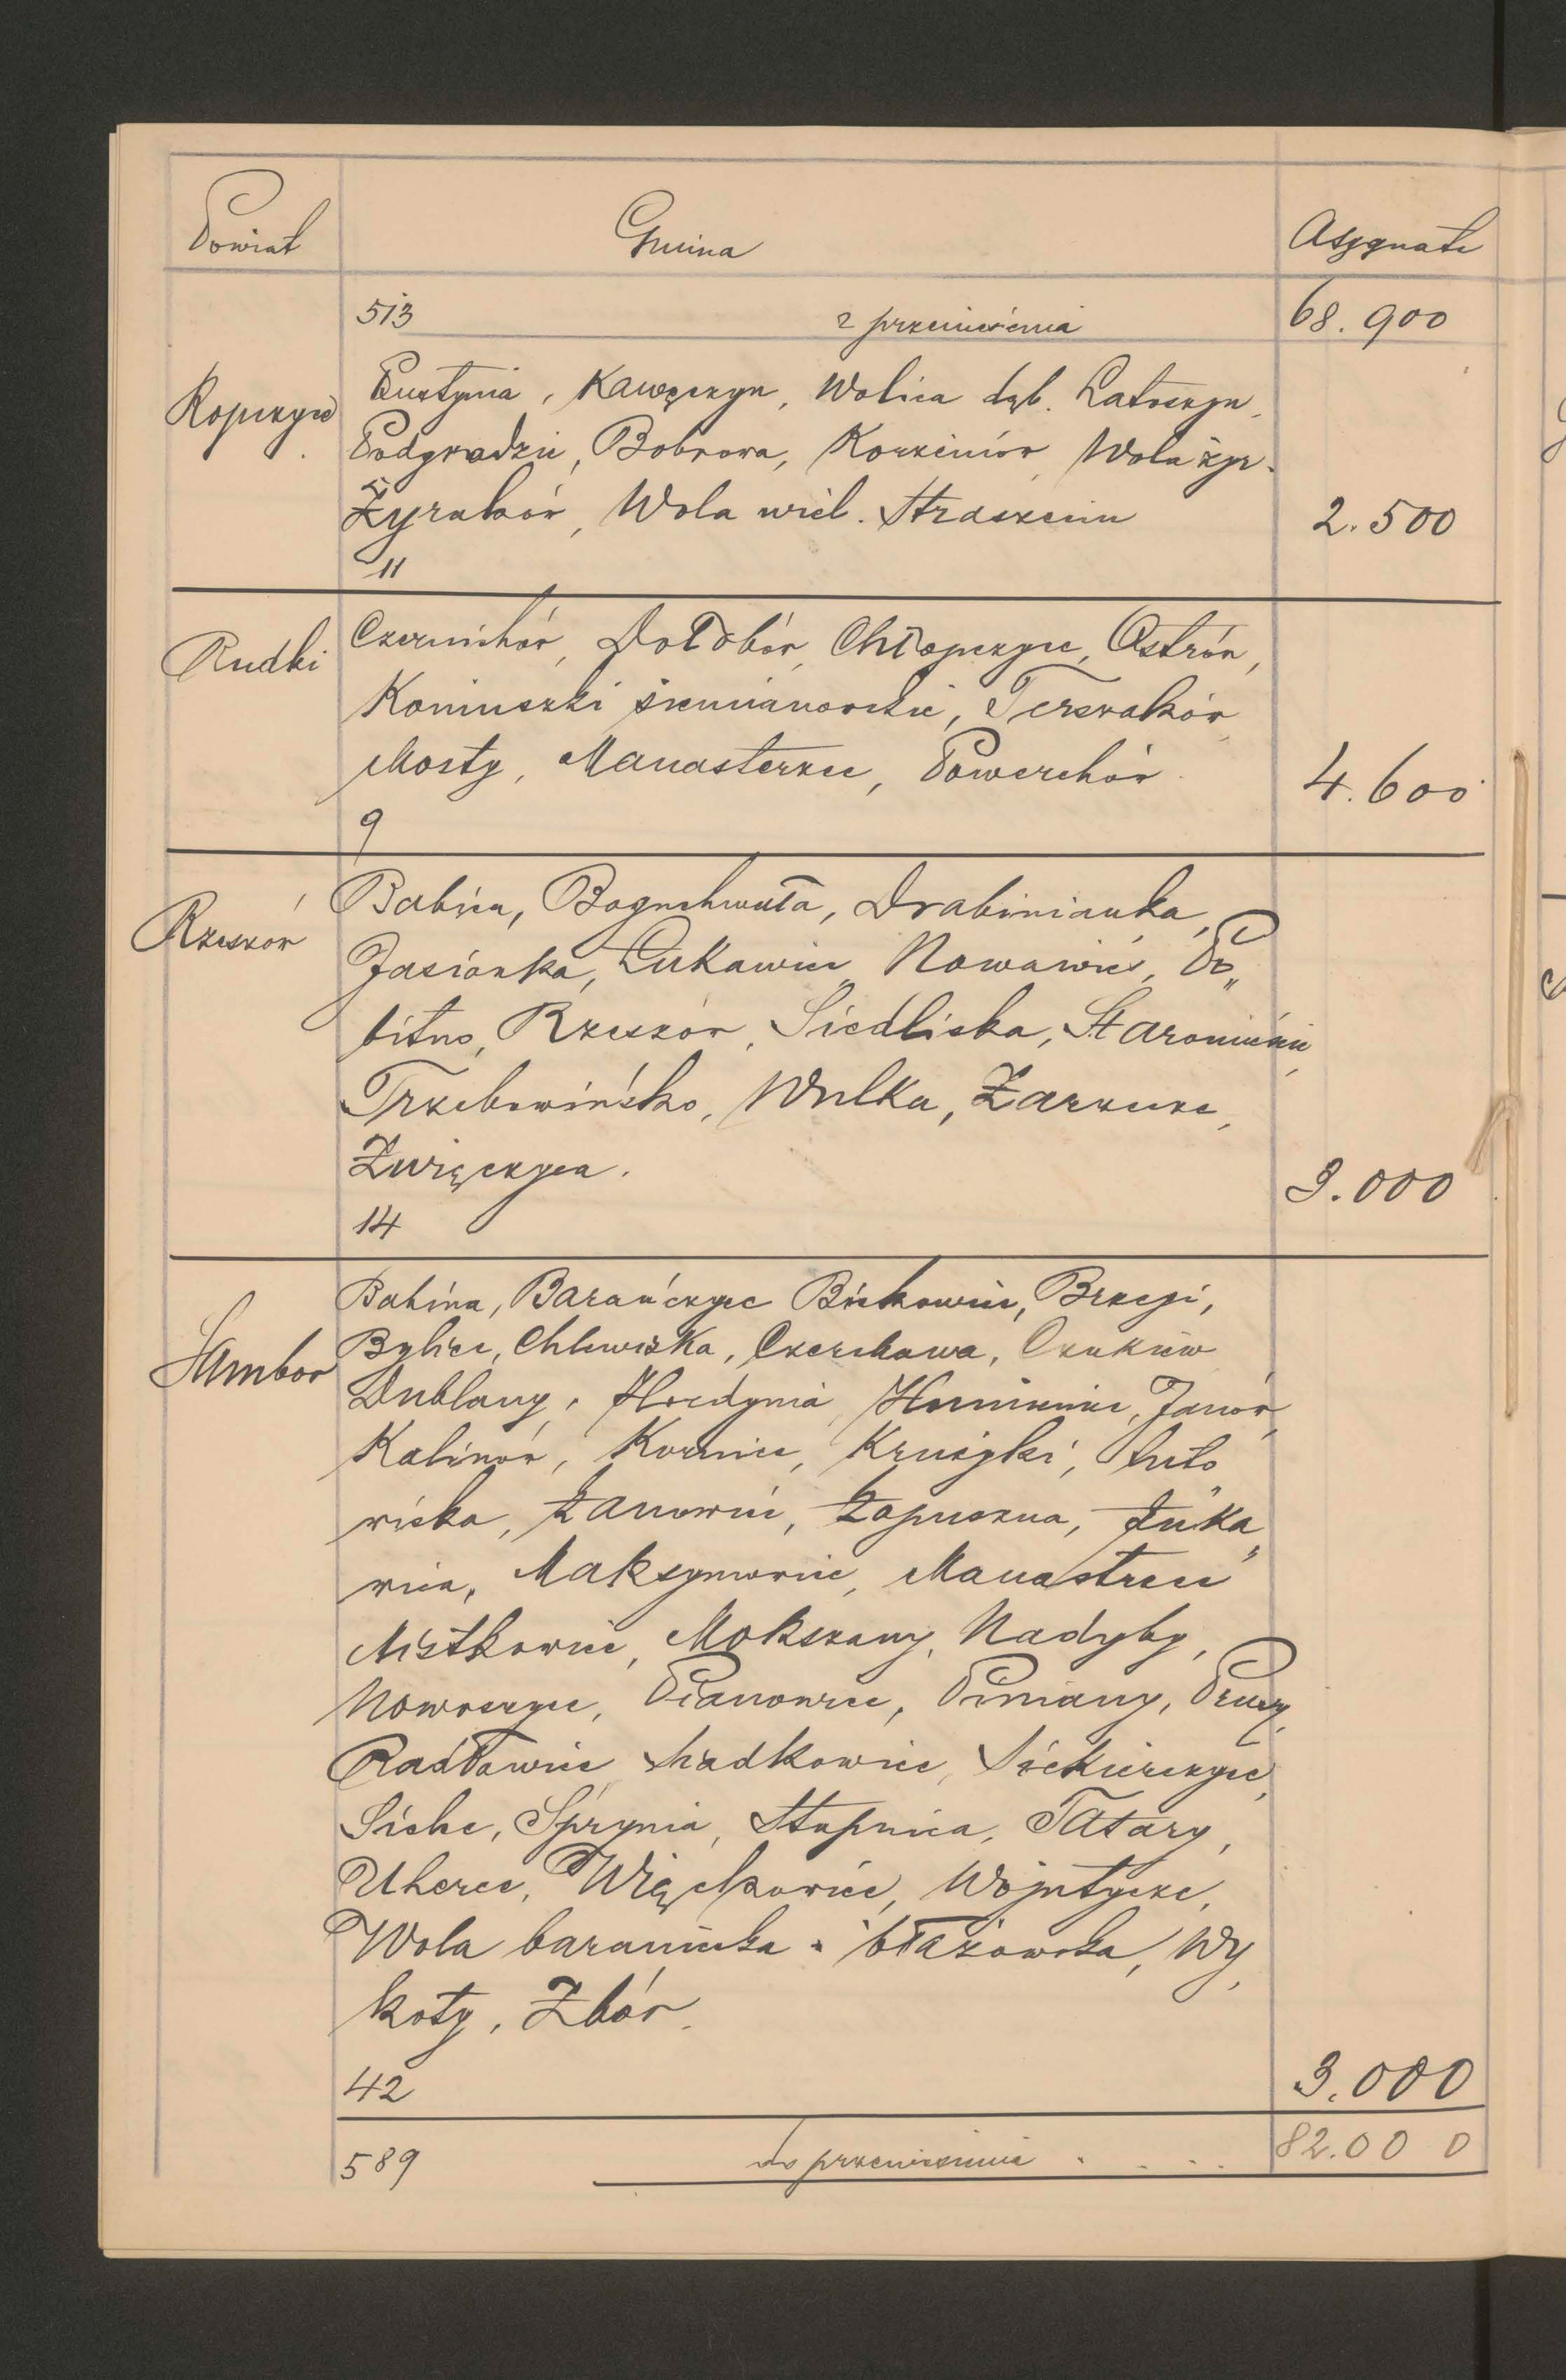 Powiat Gmina Asygnata
513 z przeniesienia 68.900
Ropczyce Pustynia, Kawęczyn, Wolica dęb. Latoszyn,
Podgrodzie, Bobrowa, Korzeniów, Wola żyr.
Żyraków, Wola wiel. Straszęcin 2.500
11
Rudki Czernichów, Dołobów, Chłopczyce, Ostrów,
Koniuszki siemianowskie, Terszaków,
Mosty, Manasterzec, Powerchów 4.600
9
Rzeszów Babica, Boguchwała, Drabinianka,
Jasionka, Łukawiec, Nowawieś, Po„
bitno, Rzeszów, Siedliska, Staromieście,
Trzebownisko, Wulka, Zarzecze,
Zwięczyca. 3.000
14
Sambor Babina, Barańczyce Biskowice, Brzegi,
Bylice, Chlewiska, Czerchawa, Czukiew
Dublany, Hordynia, Humieniec, Janów,
Kalinów, Kornice, Krużyki, Luto„
wiska, Łanowice, Łopuszna, Łuka„
wica, Maksymowice, Manastrzec
Mistkowice, Mokszany, Nadyby,
Nowoszyce, Pianowice, Piniany, Prusy,
Radłowice Sradkowice, Siekierczyce,
Siche, Sprynia, Stupnica, Tatary,
Uherce, Więckowice, Wojutycze,
Wola baraniecka " błażowska, Wy„
koty, Zbór.
42 3.000
589 do przeniesienia . . . . 82.000